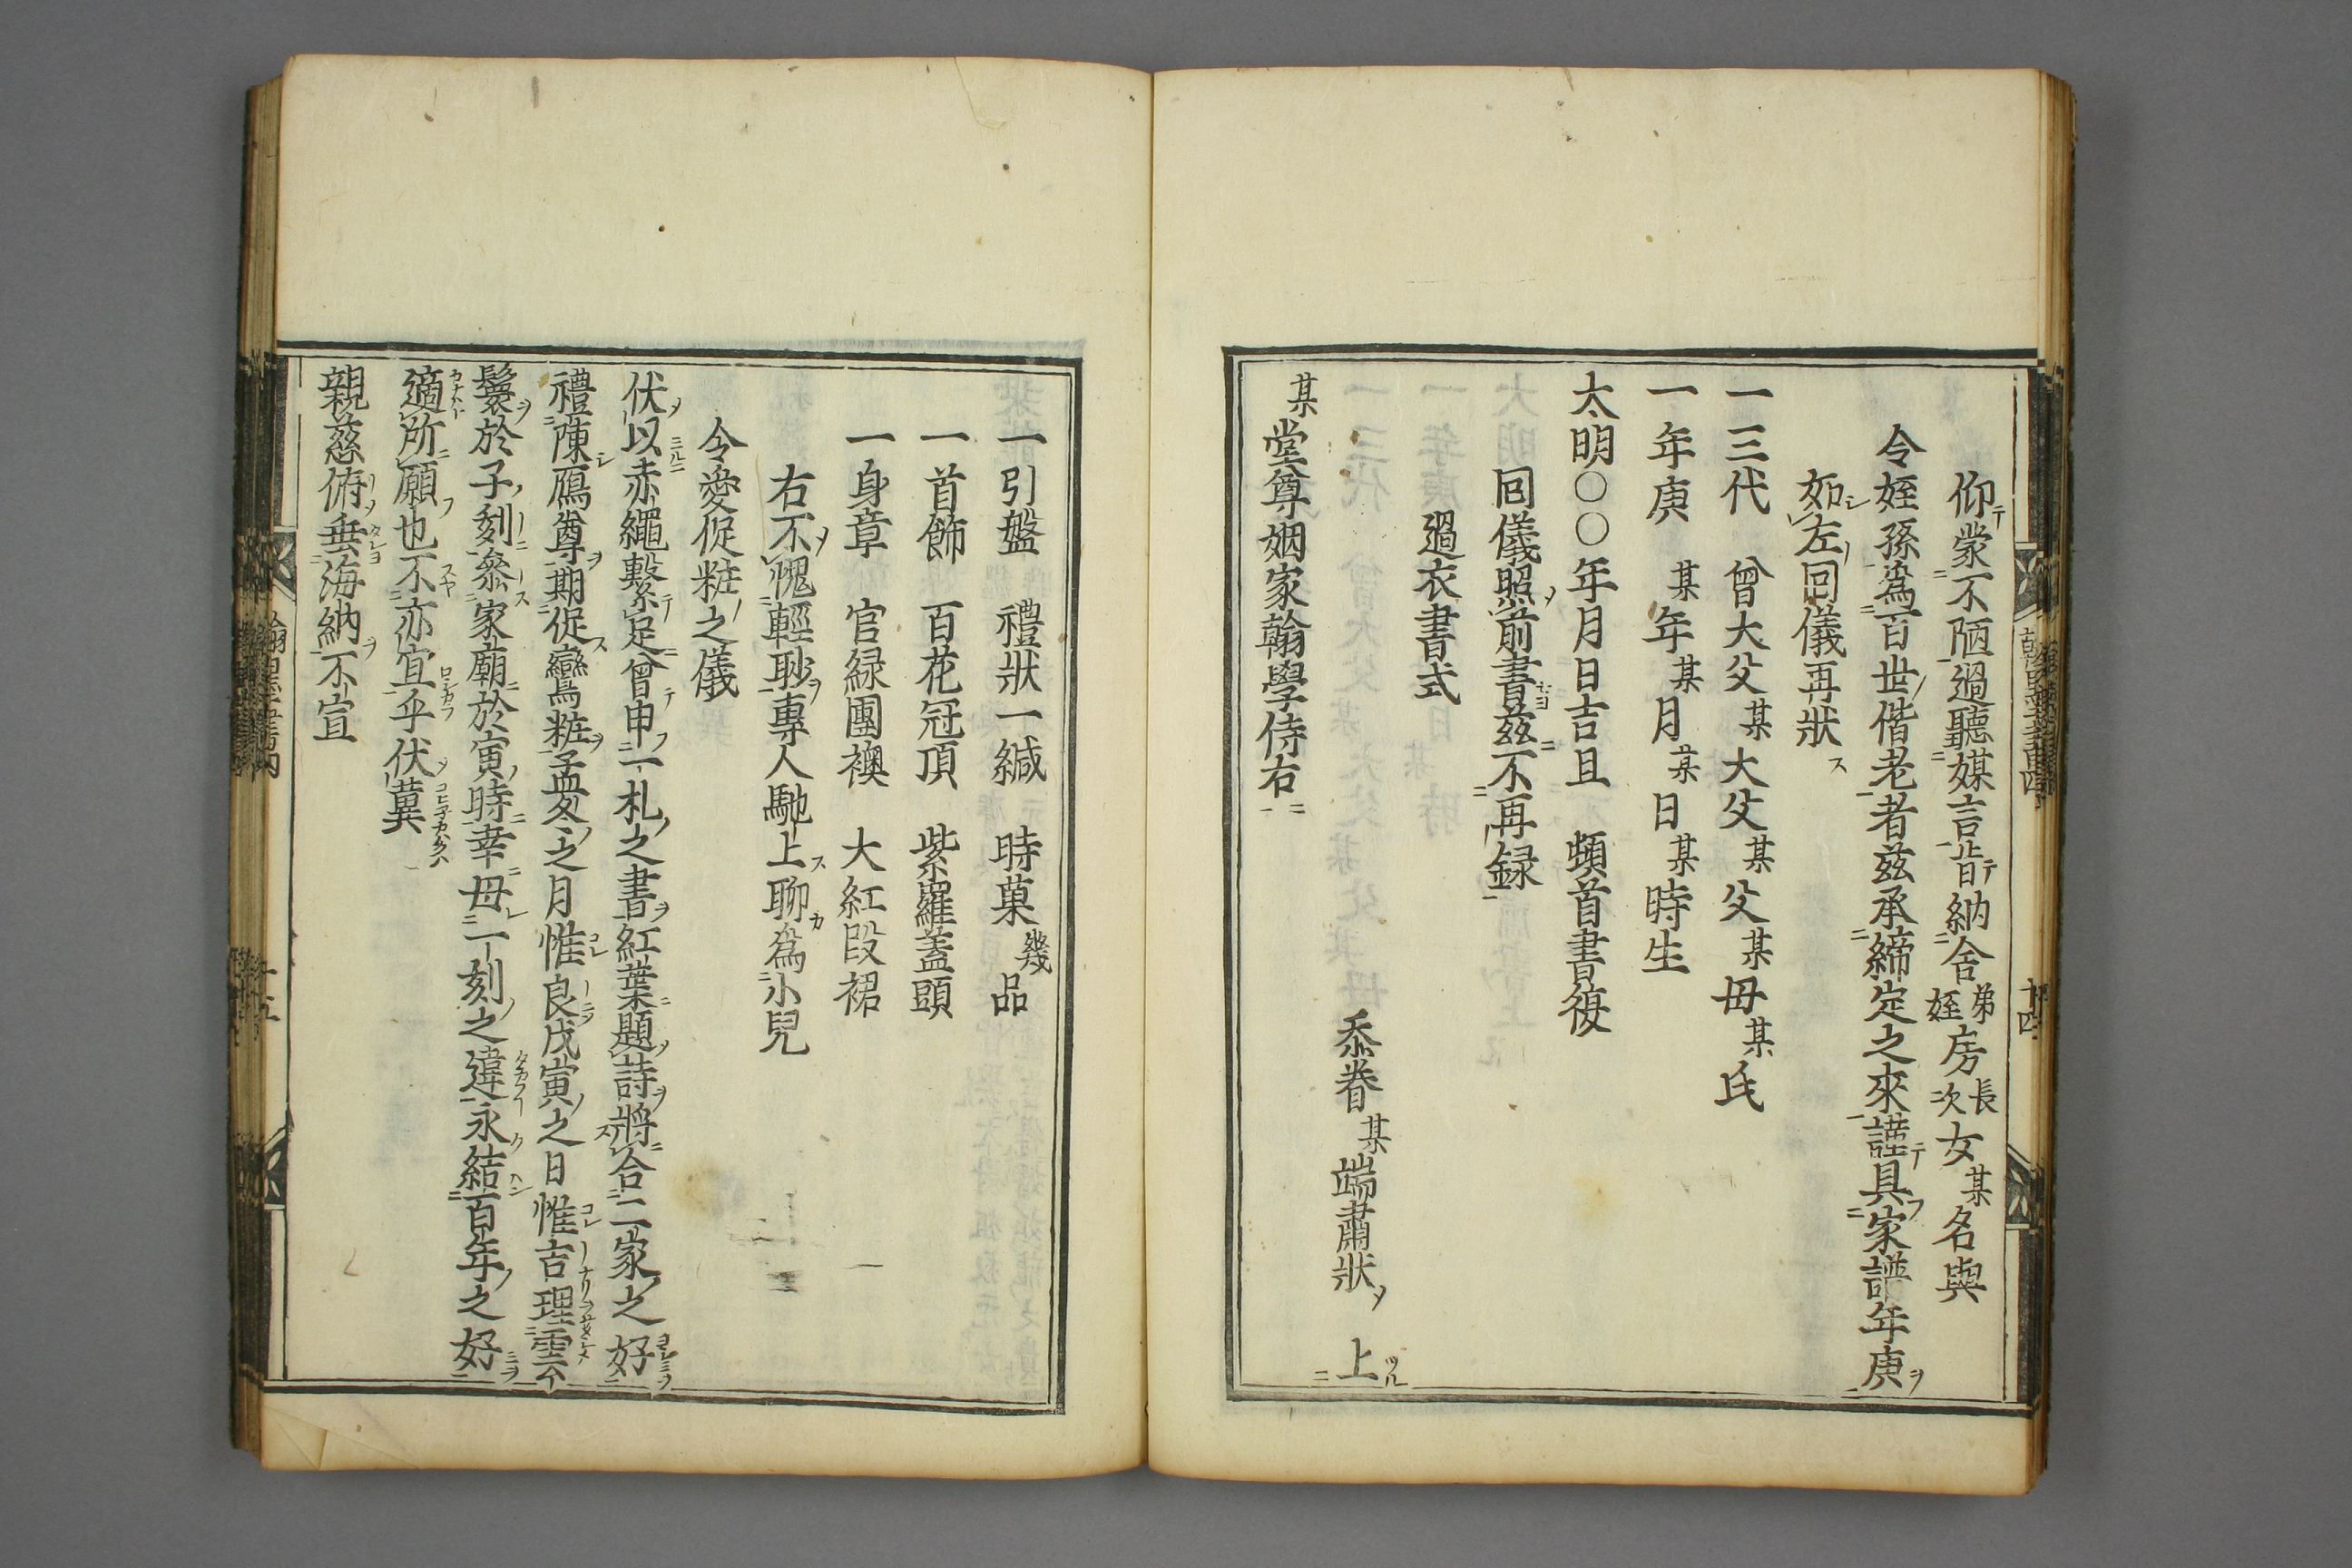 仰蒙不陋過聽媒言肯納舍弟姪房長次女某名與
令姪孫爲百世偕老者兹承締定之來謹具家譜年庚
如左回儀再狀
一三代 曾大父某大父某父某母某氏
一年庚 某年某月某日某時生
大明○○年月日吉旦 頓首書復
回儀照前書兹不再録
過衣書式
忝眷某端肅狀 上
某堂尊姻家翰學侍右
一引盤 禮狀一緘 時菓幾品
一首飾 百花冠頂 紫羅蓋頭
一身章 官緑團襖 大紅段裙
右不愧輕眇專人馳上聊爲小兒
令愛促粧之儀
伏以赤繩繫足曾申一札之書紅葉題詩將合二家之好
禮陳鴈尊期促鸞粧孟冬之月惟良戊寅之日惟吉理雲
鬟於子刻叅家廟於寅時幸毋一刻之違永結百年之好
適所願也不亦宜乎伏兾
親慈俯垂海納不宣
十四
十五